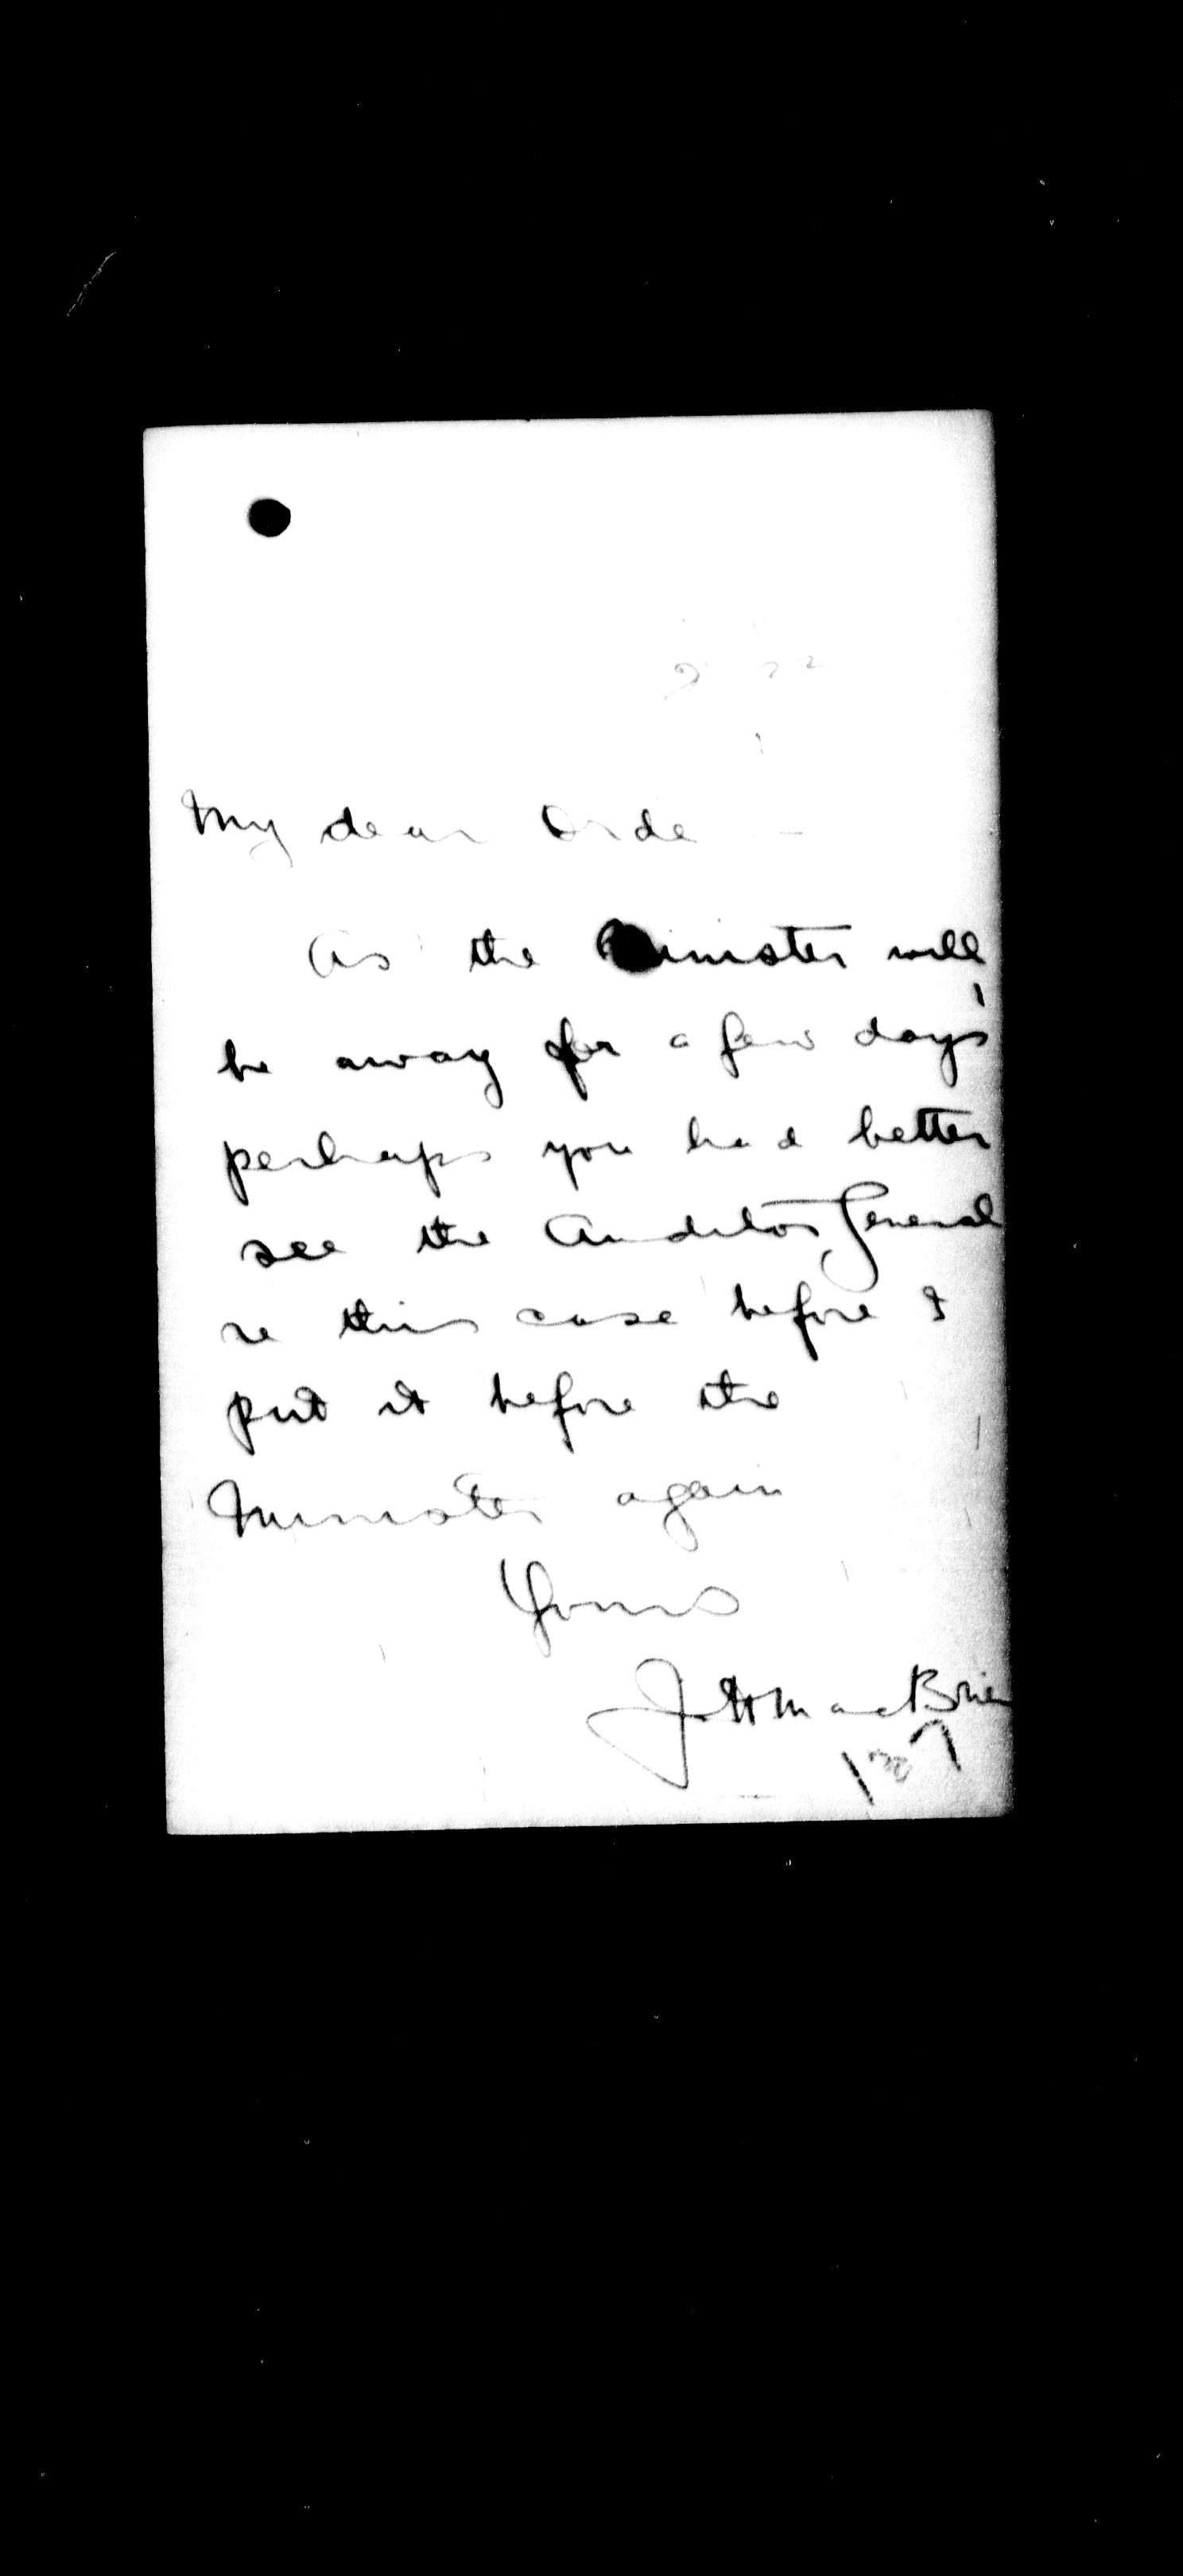 My dear Orde —
As the Minister will
be away for a few days
perhaps you had better
see the Auditor General
re this case before I
put it before the
Minister again
Yours
J H MacBrien